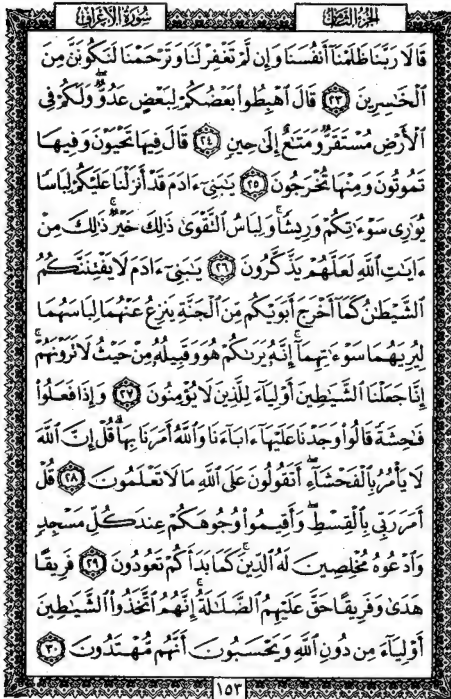 الجزء الثامن
سورة الأعراف
قَالَا رَبَّنَا ظَلَمْنَآ أَنفُسَنَا وَإِن لَّمْ تَغْفِرْ لَنَا وَتَرْحَمْنَا لَنَكُونَنَّ مِنَ
ٱلْخَٰسِرِينَ ﴿٢٣﴾ قَالَ ٱهْبِطُوا۟ بَعْضُكُمْ لِبَعْضٍ عَدُوٌّۖ وَلَكُمْ فِى
ٱلْأَرْضِ مُسْتَقَرٌّ وَمَتَٰعٌ إِلَىٰ حِينٍ ﴿٢٤﴾ قَالَ فِيهَا تَحْيَوْنَ وَفِيهَا
تَمُوتُونَ وَمِنْهَا تُخْرَجُونَ ﴿٢٥﴾ يَٰبَنِىٓ ءَادَمَ قَدْ أَنزَلْنَا عَلَيْكُمْ لِبَاسًا
يُوَٰرِى سَوْءَٰتِكُمْ وَرِيشًاۖ وَلِبَاسُ ٱلتَّقْوَىٰ ذَٰلِكَ خَيْرٌۚ ذَٰلِكَ مِنْ
ءَايَٰتِ ٱللَّهِ لَعَلَّهُمْ يَذَّكَّرُونَ ﴿٢٦﴾ يَٰبَنِىٓ ءَادَمَ لَا يَفْتِنَنَّكُمُ
ٱلشَّيْطَٰنُ كَمَآ أَخْرَجَ أَبَوَيْكُم مِّنَ ٱلْجَنَّةِ يَنزِعُ عَنْهُمَا لِبَاسَهُمَا
لِيُرِيَهُمَا سَوْءَٰتِهِمَآۗ إِنَّهُۥ يَرَىٰكُمْ هُوَ وَقَبِيلُهُۥ مِنْ حَيْثُ لَا تَرَوْنَهُمْۗ
إِنَّا جَعَلْنَا ٱلشَّيَٰطِينَ أَوْلِيَآءَ لِلَّذِينَ لَا يُؤْمِنُونَ ﴿٢٧﴾ وَإِذَا فَعَلُوا۟
فَٰحِشَةً قَالُوا۟ وَجَدْنَا عَلَيْهَآ ءَابَآءَنَا وَٱللَّهُ أَمَرَنَا بِهَاۗ قُلْ إِنَّ ٱللَّهَ
لَا يَأْمُرُ بِٱلْفَحْشَآءِۖ أَتَقُولُونَ عَلَى ٱللَّهِ مَا لَا تَعْلَمُونَ ﴿٢٨﴾ قُلْ
أَمَرَ رَبِّى بِٱلْقِسْطِۖ وَأَقِيمُوا۟ وُجُوهَكُمْ عِندَ كُلِّ مَسْجِدٍ
وَٱدْعُوهُ مُخْلِصِينَ لَهُ ٱلدِّينَۚ كَمَا بَدَأَكُمْ تَعُودُونَ ﴿٢٩﴾ فَرِيقًا
هَدَىٰ وَفَرِيقًا حَقَّ عَلَيْهِمُ ٱلضَّلَٰلَةُۗ إِنَّهُمُ ٱتَّخَذُوا۟ ٱلشَّيَٰطِينَ
أَوْلِيَآءَ مِن دُونِ ٱللَّهِ وَيَحْسَبُونَ أَنَّهُم مُّهْتَدُونَ ﴿٣٠﴾
١٥٣